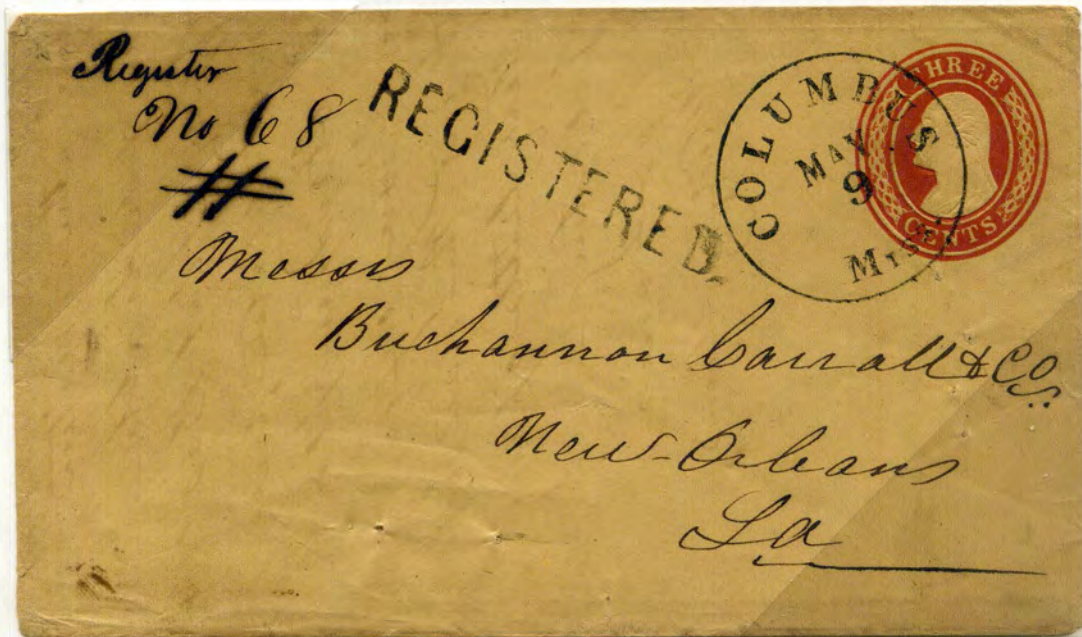 Register
No 68
REGISTERED
COLUMBUS
MAY
9
Miss.
THREE
CENTS
Messrs
Buchannon Carroll & Co.
New-Orleans
La